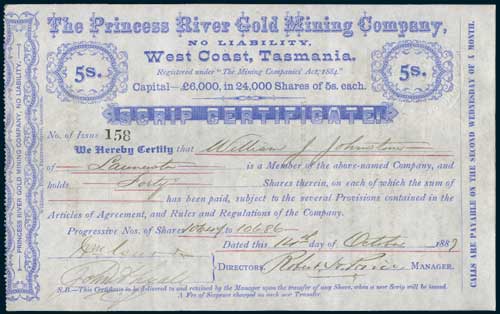 The Princess River Gold Mining Company,
NO LIABILITY.
West Coast, Tasmania.
Registered under "The Mining Companies' Act, 1884."
Capital—£6,000, in 24,000 Shares of 5s. each.
5s.
5s.
SCRIP CERTIFICATE.
No. of Issue 158
We Hereby Certify that William J Johnstone
of Launceston is a Member of the above-named Company, and
holds Forty Shares therein, on each of which the sum of
has been paid, subject to the several Provisions contained in the
Articles of Agreement, and Rules and Regulations of the Company.
Progressive Nos. of Shares 10647 to 10686
Dated this 14th day of October 1887
DIRECTORS. MANAGER.
N.B.—This Certificate to be delivered to and retained by the Manager upon the transfer of any Share, when a new Scrip will be issued.
A Fee of Sixpence charged on each new Transfer.
PRINCESS RIVER GOLD MINING COMPANY, NO LIABILITY.
CALLS ARE PAYABLE ON THE SECOND WEDNESDAY OF A MONTH.